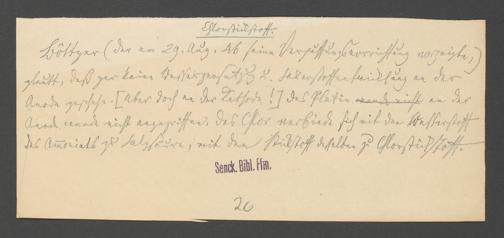 Chlorstickstoff.
Böttger (der am 29. Aug. 46 seine Verpuffungsvorrichtung vorzeigte,)
glaubt, daß gar keine Wasserzersetzg u. Sauerstoffentwicklung an der
Anode geschehe. [Aber doch an der Kathode!] Das Platin wurde nicht an der
Anode wurde nicht angegriffen. Das Chlor verbinde sich mit dem Wasserstoff
des Ammoniaks zu Salzsäure, mit dem Stickstoff desselben zu Chlorstickstoff.
Senck. Bibl. Ffm.
20